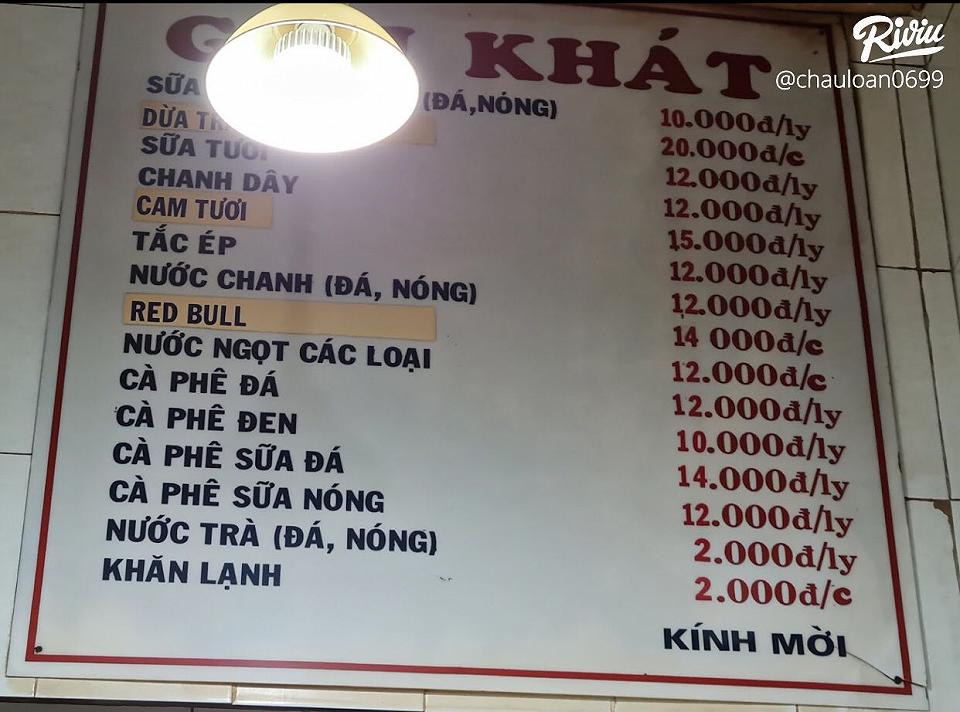 Riviu
@chauloan0699
KHÁT
SỮA (ĐÁ,NÓNG) 10.000đ/ly
DỪA 20.000đ/c
SỮA TƯƠI 12.000đ/ly
CHANH DÂY 12.000đ/ly
CAM TƯƠI 15.000đ/ly
TẮC ÉP 12.000đ/ly
NƯỚC CHANH (ĐÁ, NÓNG) 12.000đ/ly
RED BULL 14 000đ/c
NƯỚC NGỌT CÁC LOẠI 12.000đ/c
CÀ PHÊ ĐÁ 12.000đ/ly
CÀ PHÊ ĐEN 10.000đ/ly
CÀ PHÊ SỮA ĐÁ 14.000đ/ly
CÀ PHÊ SỮA NÓNG 12.000đ/ly
NƯỚC TRÀ (ĐÁ, NÓNG) 2.000đ/ly
KHĂN LẠNH 2.000đ/c
KÍNH MỜI